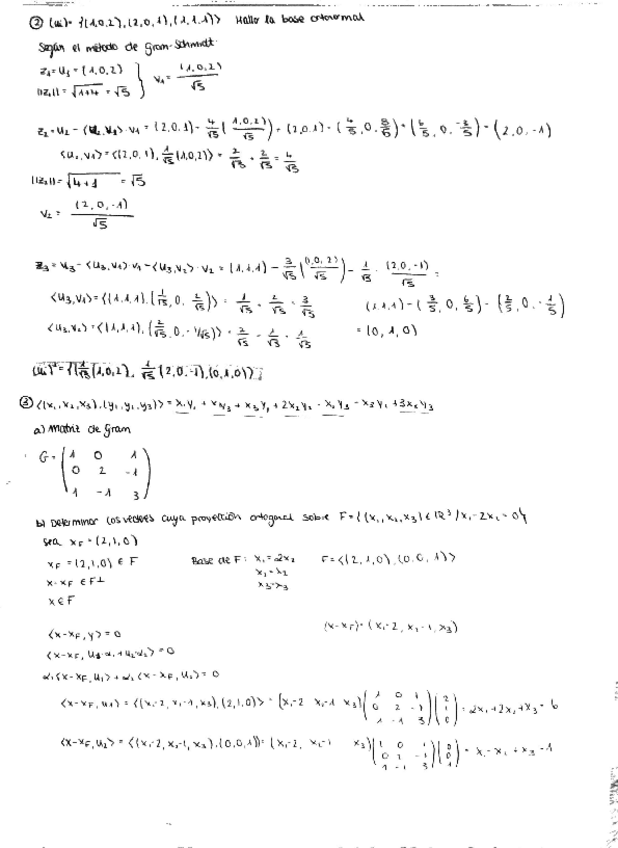 ② (ui)= {(1,0,2),(2,0,1),(1,1,1)} Hallo la base ortonormal
Según el método de Gram-Schmidt:
z₁=u₁ = (1,0,2)
||z₁||= √1+4 = √5
v₁ = (1,0,2)/√5
z₂=u₂ - <u₂,v₁>·v₁ = (2,0,1) - 4/√5 ((1,0,2)/√5) = (2,0,1) - (4/5, 0, 8/5) = (6/5, 0, -3/5) = (2,0,-1)
<u₂,v₁> = <(2,0,1), 1/√5 (1,0,2)> = 2/√5 + 2/√5 = 4/√5
||z₂||= √4+1 = √5
v₂ = (2,0,-1)/√5
z₃ = u₃ - <u₃,v₁>·v₁ - <u₃,v₂>·v₂ = (1,1,1) - 3/√5 ((1,0,2)/√5) - 1/√5 · (2,0,-1)/√5 =
<u₃,v₁> = <(1,1,1), (1/√5, 0, 2/√5)> = 1/√5 + 2/√5 = 3/√5
(1,1,1) - (3/5, 0, 6/5) - (2/5, 0, -1/5)
<u₃,v₂> = <(1,1,1), (2/√5, 0, -1/√5)> = 2/√5 - 1/√5 = 1/√5
= (0,1,0)
= {1/√5 (1,0,2), 1/√5 (2,0,-1), (0,1,0)}
③ <(x₁,x₂,x₃),(y₁,y₂,y₃)> = x₁y₁ + x₁y₃ + x₃y₁ + 2x₂y₂ - x₂y₃ - x₃y₂ + 3x₃y₃
a) Matriz de Gram
G = (1 0 1
0 2 -1
1 -1 3)
b) Determinar los vectores cuya proyección ortogonal sobre F={(x₁,x₂,x₃)∈ℝ³/x₁-2x₂=0}
sea x_F = (2,1,0)
x_F = (2,1,0) ∈ F Base de F: x₁=2x₂ F=<(2,1,0),(0,0,1)>
x-x_F ∈ F⊥ x₂=λ₂
x₃=λ₃
x ∈ F
(x-x_F) = (x₁-2, x₂-1, x₃)
<x-x_F, y> = 0
<x-x_F, u₁·α₁+u₂·α₂> = 0
α₁<x-x_F, u₁> + α₂<x-x_F, u₂> = 0
<x-x_F, u₁> = <(x₁-2, x₂-1, x₃),(2,1,0)> = (x₁-2 x₂-1 x₃) (1 0 1 / 0 2 -1 / 1 -1 3) (2 / 1 / 0) = 2x₁+2x₂+x₃ = 6
<x-x_F, u₂> = <(x₁-2, x₂-1, x₃),(0,0,1)> = (x₁-2, x₂-1 x₃) (1 0 1 / 0 2 -1 / 1 -1 3) (0 / 0 / 1) = x₁-x₂+x₃-1